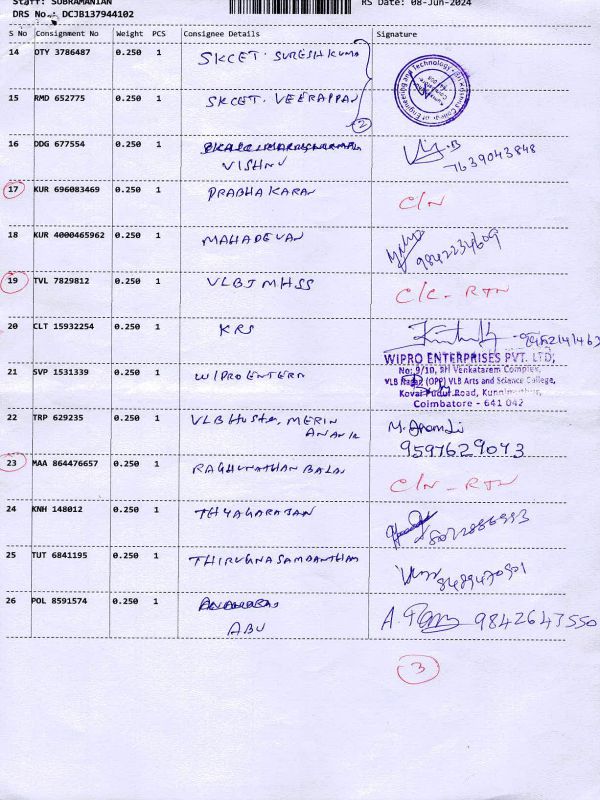 Staff: SUBRAMANIAN RS Date: 08-Jun-2024
DRS No.: DCJB137944102
S No Consignment No Weight PCS Consignee Details Signature
14 DTY 3786487 0.250 1 SKCET. SURESH KUMA
15 RMD 652775 0.250 1 SKCET. VEERAPPAN
2
16 DDG 677554 0.250 1
VISHNU 7639043848
17 KUR 696083469 0.250 1 PRABHAKARAN C/N
18 KUR 4000465962 0.250 1 MAHADEVAN 9842234609
19 TVL 7829812 0.250 1 VLBJMHSS C/C - RTN
20 CLT 15932254 0.250 1 KRS
WIPRO ENTERPRISES PVT. LTD,
21 SVP 1531339 0.250 1 WIPRO ENTERN No: 9/10, Sri Venkatarem Complex,
VLB Nagar (OPP) VLB Arts and Science College,
Kovai Pudur Road, Kuniamuthur,
Coimbatore - 641 042
22 TRP 629235 0.250 1 VLB Hostel, MERIN
9597629073
23 MAA 864476657 0.250 1 RAGHUNATHAN BALAJ C/N - RTN
24 KNH 148012 0.250 1 THYAGARAJAN
25 TUT 6841195 0.250 1 THIRUGNASAMBANTHAM 8489470901
26 POL 8591574 0.250 1
ABU 9842643550
3